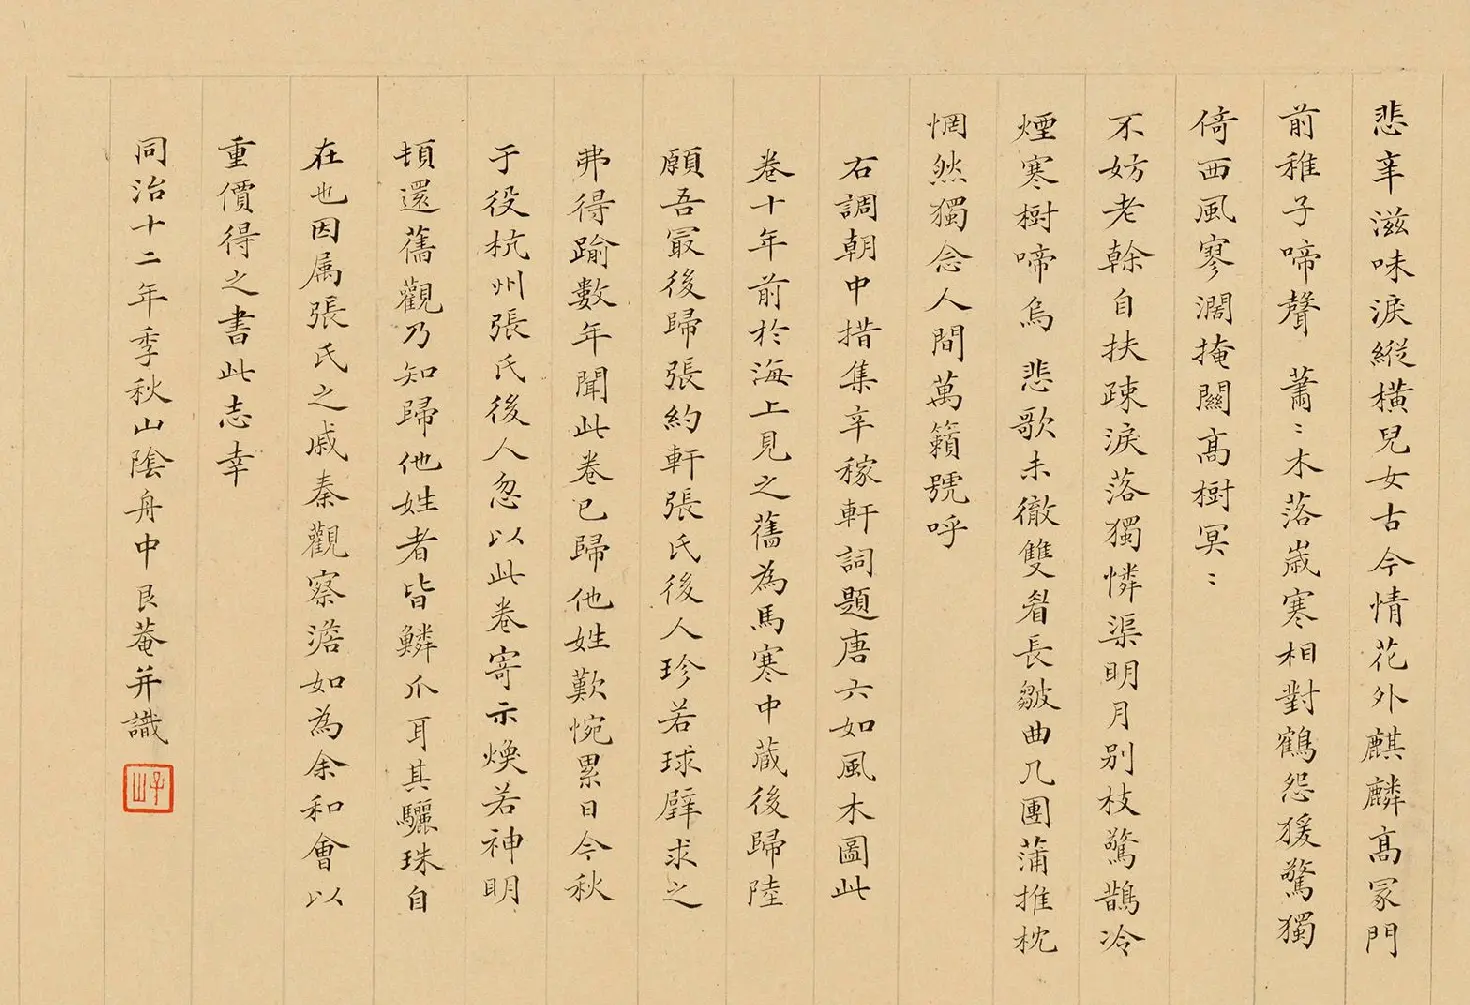 悲辛滋味淚縱橫兒女古今情花外麒麟高冢門
前稚子啼聲 蕭〻木落歲寒相對鶴怨猨驚獨
倚西風寥濶掩關高樹冥〻
不妨老榦自扶疎淚落獨憐渠明月别枝驚鵲冷
煙寒樹啼烏 悲歌未徹雙眉長皺曲几團蒲推枕
惘然獨念人間萬籟號呼
右調朝中措集辛稼軒詞題唐六如風木圖此
卷十年前於海上見之舊為馬寒中蔵後歸陸
願吾冣後歸張約軒張氏後人珍若球璧求之
弗得踰數年聞此卷已歸他姓歎惋累日今秋
于役杭州張氏後人忽以此卷寄示煥若神明
頓還舊觀乃知歸他姓者皆鱗爪耳其驪珠自
在也因属張氏之戚秦觀察澹如為余和會以
重價得之書此志幸
同治十二年季秋山陰舟中艮菴并識
子山